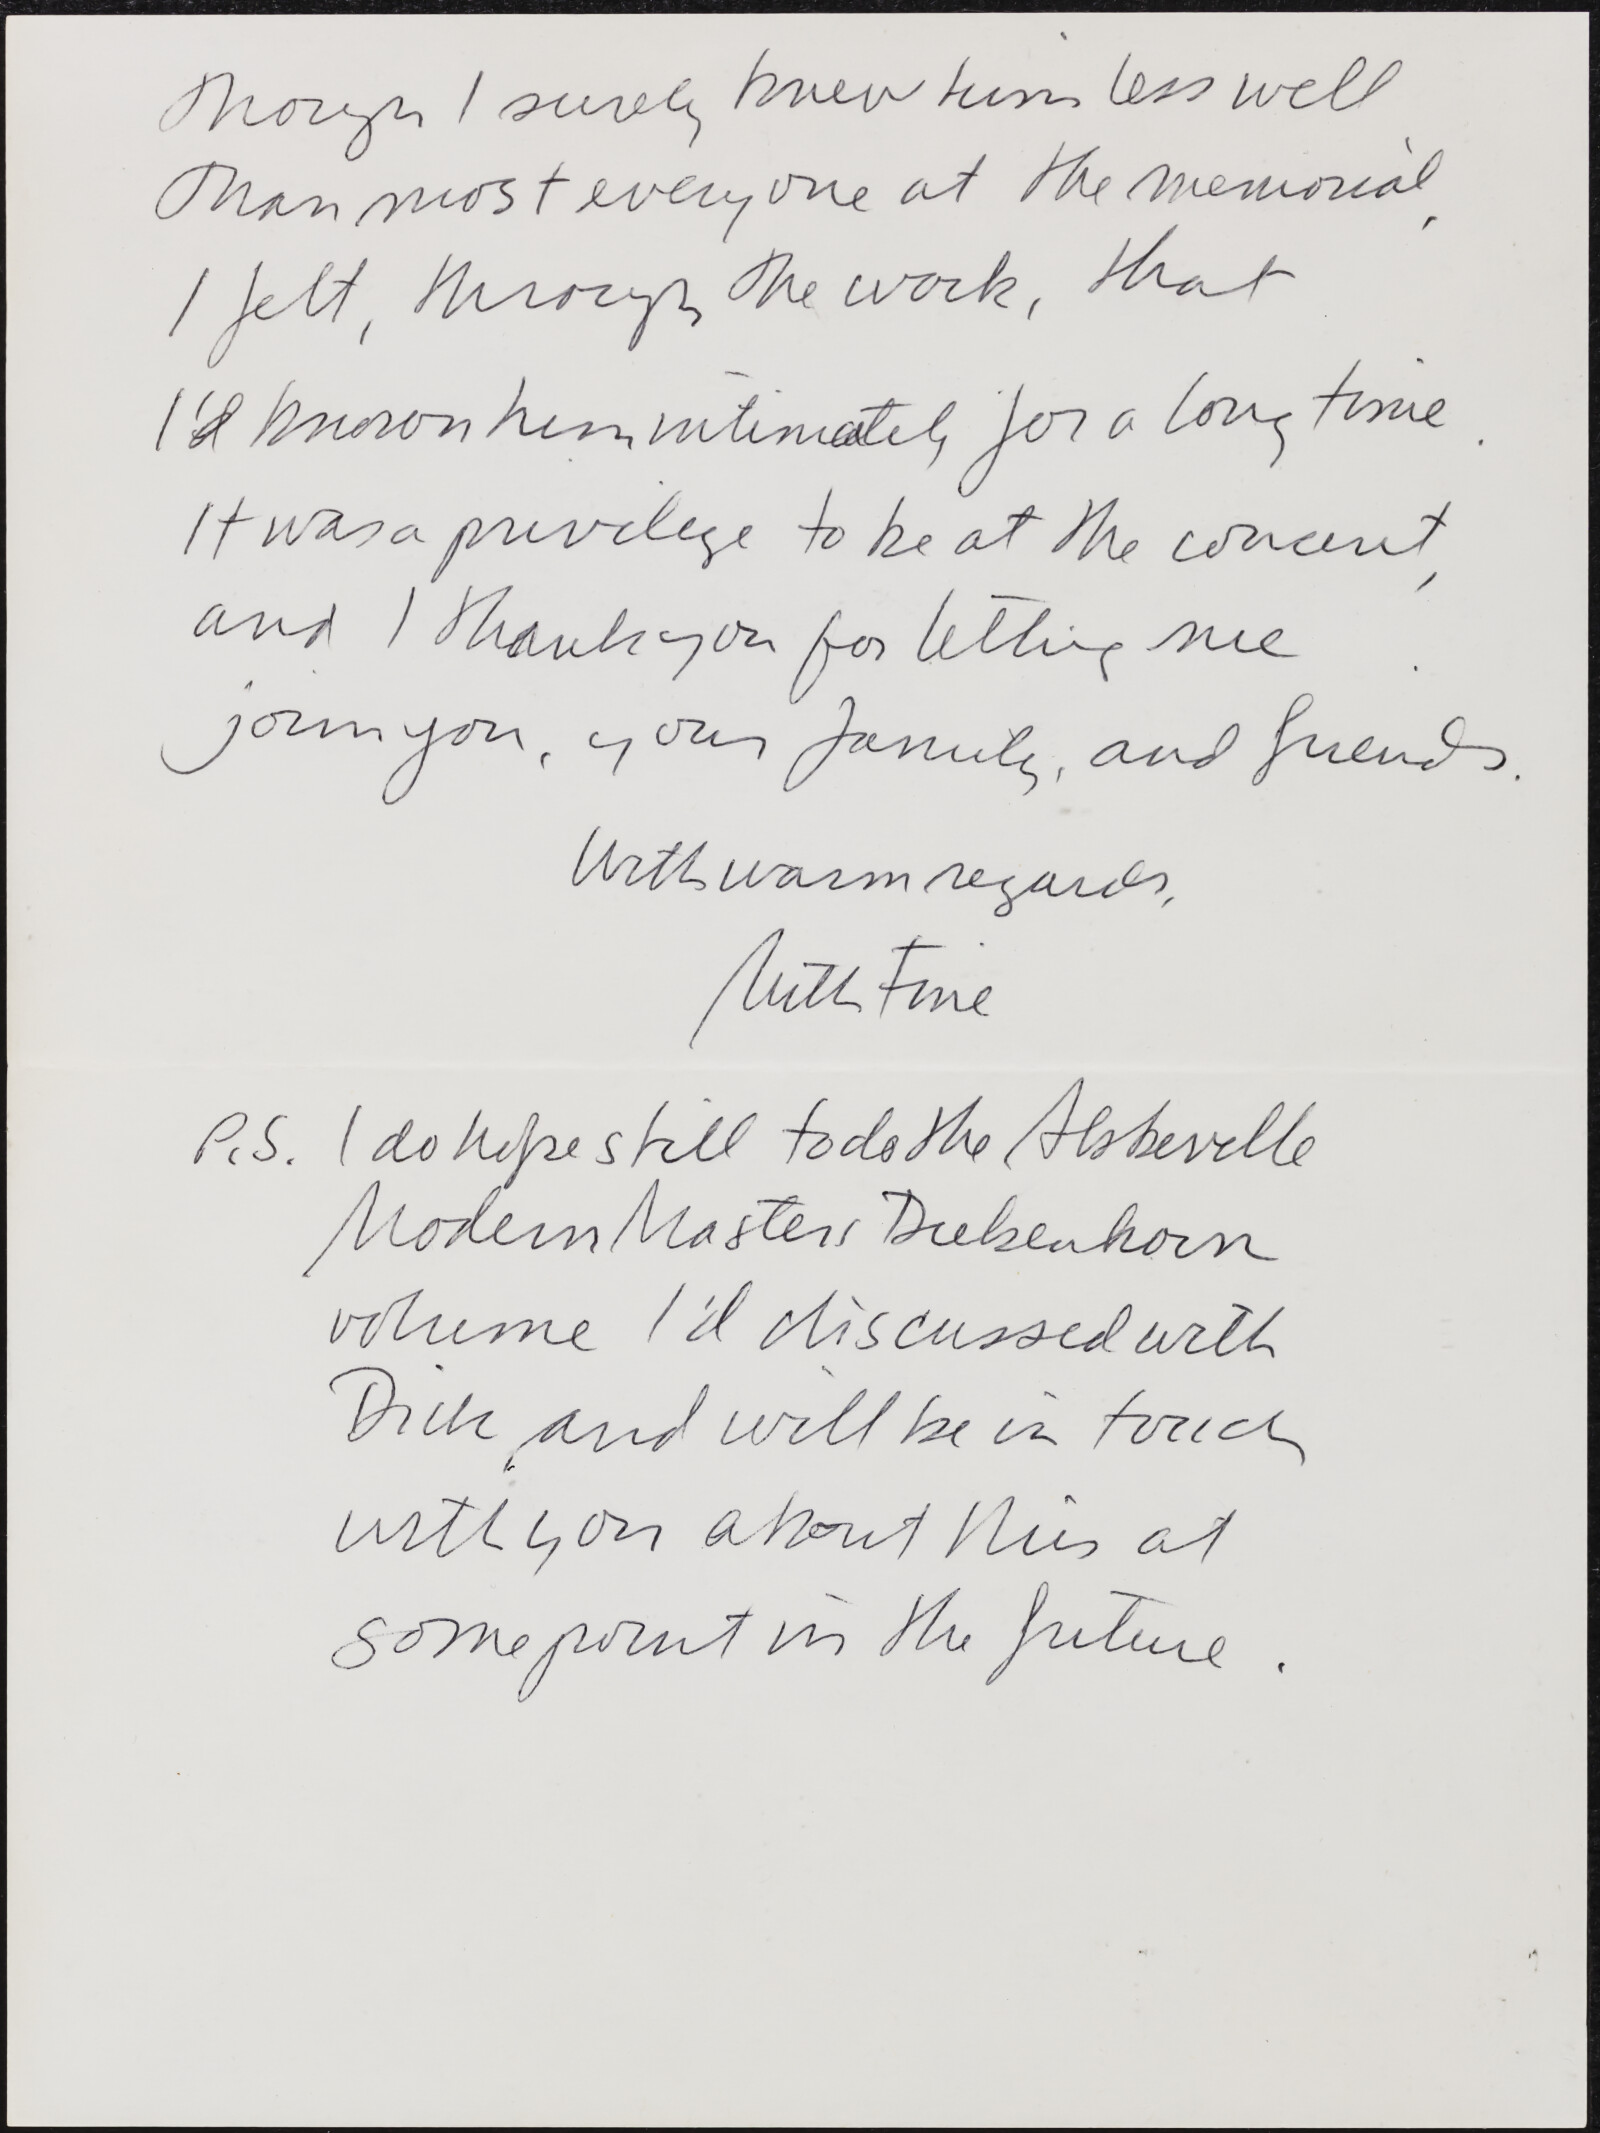 Though I surely knew him less well
than most everyone at the memorial,
I felt, through the work, that
I'd known him intimately for a long time.
It was a privilege to be at the concert,
and I thank you for letting me
join you, your family, and friends.
With warm regards,
Ruth Fine
P.S. I do hope still to do the Abbeville
Modern Masters Diebenkorn
volume I'd discussed with
Dick, and will be in touch
with you about this at
some point in the future.